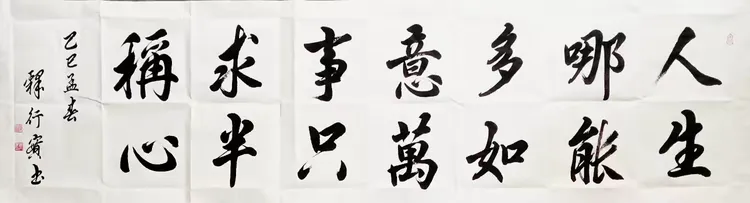 人生
哪能
多如
意萬
事只
求半
稱心
乙巳孟春
釋行書